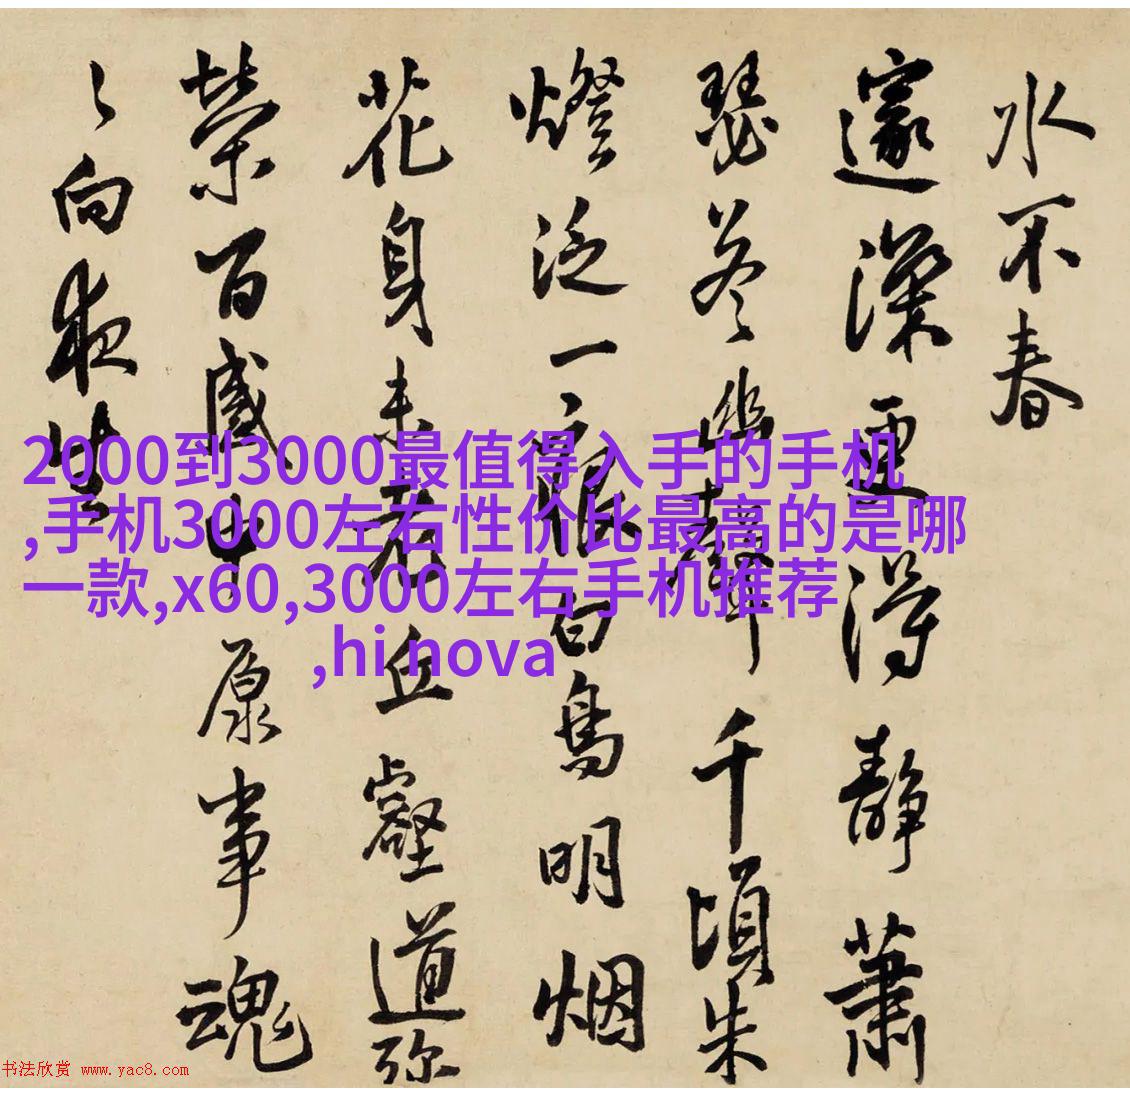 水不春
邃深更得靜蕭
瑟幽聲千頃朱
燈泛一痕白鳥明烟
花身未老丘壑道弥
榮百感中原事魂
向夜
2000到3000最值得入手的手机
,手机3000左右性价比最高的是哪
一款,x60,3000左右手机推荐
,hi nova
书法欣赏 www.yac8.com